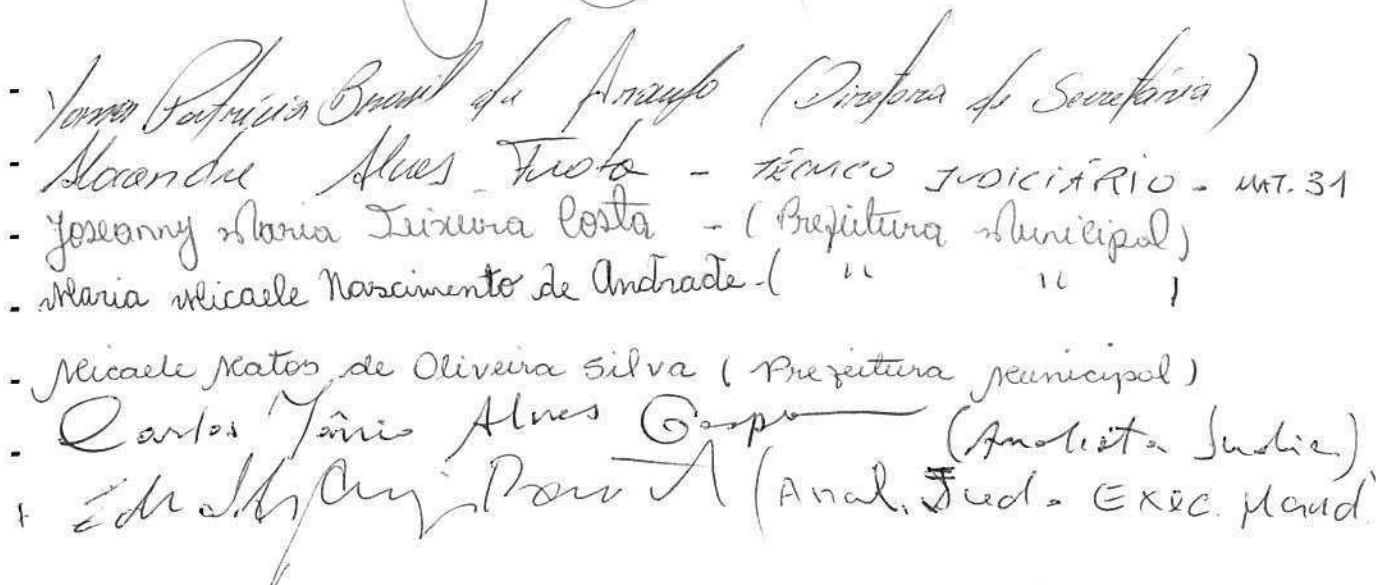 - Patrícia Brasil de Araujo (Diretora de Secretária)
- Alexandre Alves Frota - TÉCNICO JUDICIÁRIO - MAT. 31
- Joseanny Maria Teixeira Costa - (Prefeitura Municipal)
- Maria Micaele Nascimento de Andrade - ( " " )
- Micaele Matos de Oliveira Silva (Prefeitura Municipal)
- Carlos Tânio Alves (Analista Judic.)
(Anal. Jud. Exec. Mand.